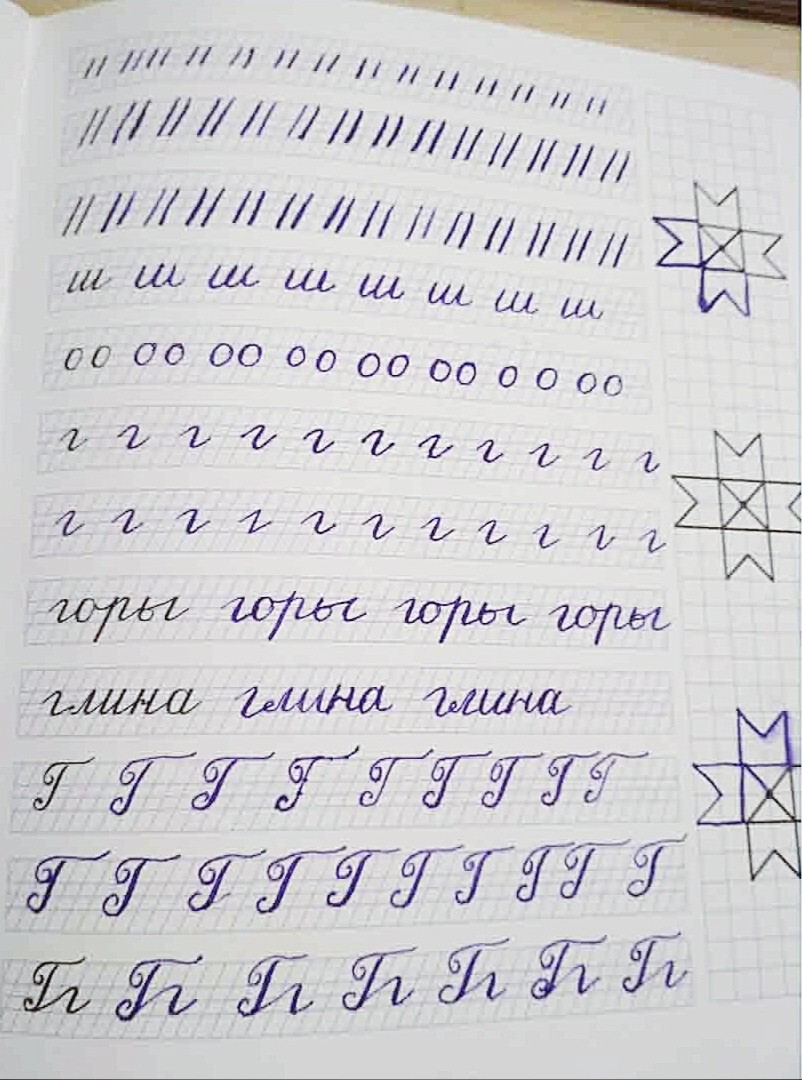 ш ш ш ш ш ш ш ш
оо оо оо оо оо оо о о оо
г г г г г г г г г г г
г г г г г г г г г г г
горы горы горы горы
глина глина глина
Г Г Г Г Г Г Г Г Г
Г Г Г Г Г Г Г Г Г Г
Гг Гг Гг Гг Гг Гг Гг